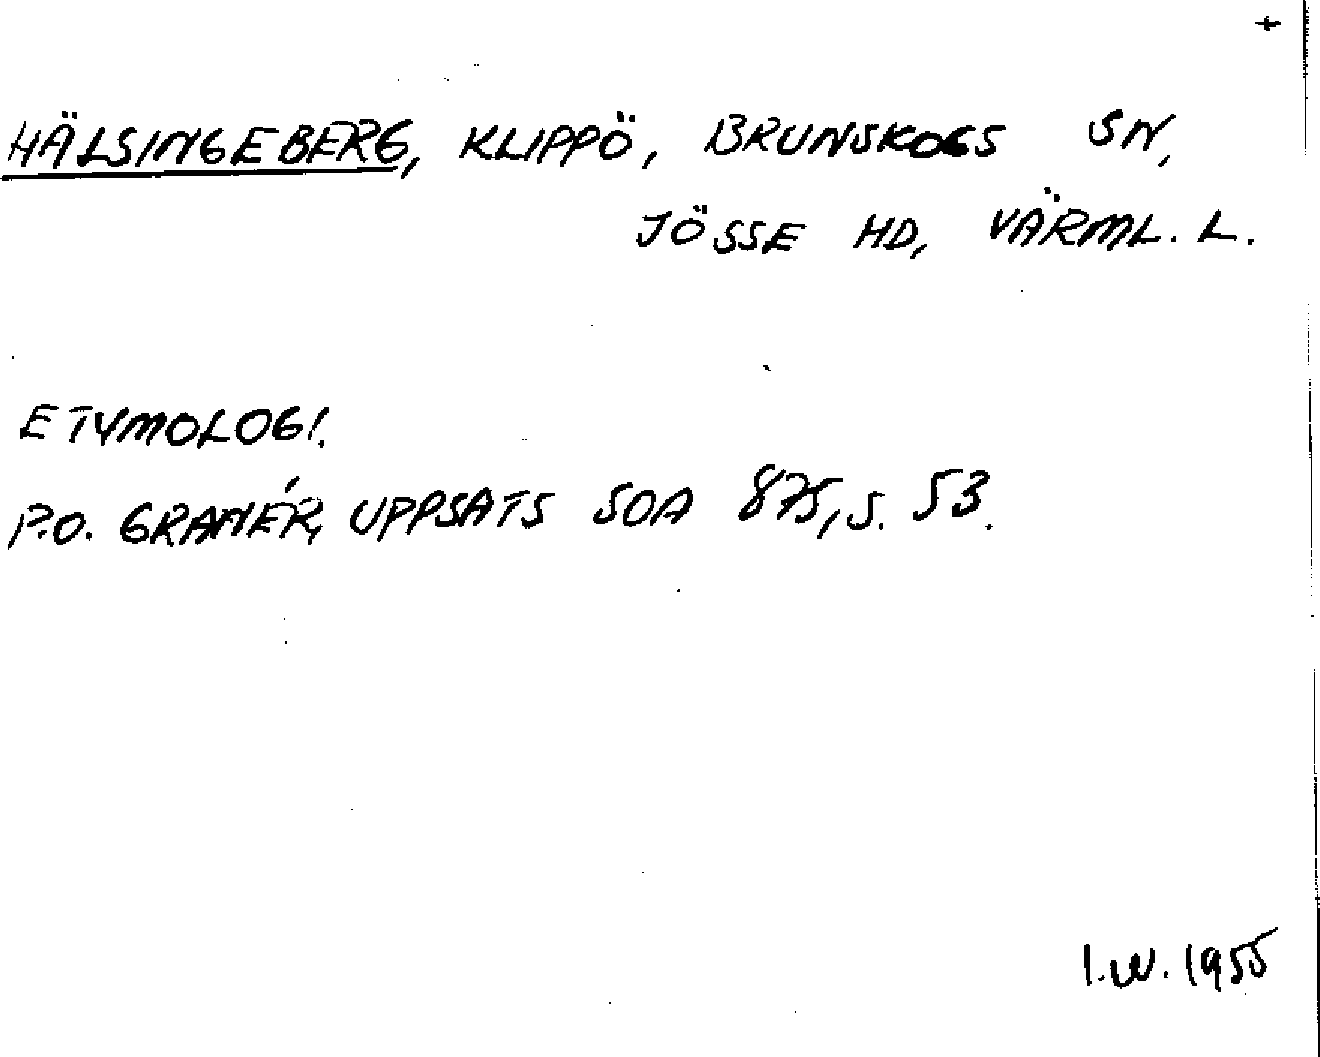 +
HÄLSINGEBERG, KLIPPÖ, BRUNSKOGS SN,
JÖSSE HD, VÄRML. L.
ETYMOLOGI.
P.O. GRANÉR, UPPSATS SOA 875, S. 53.
I.W. 1955